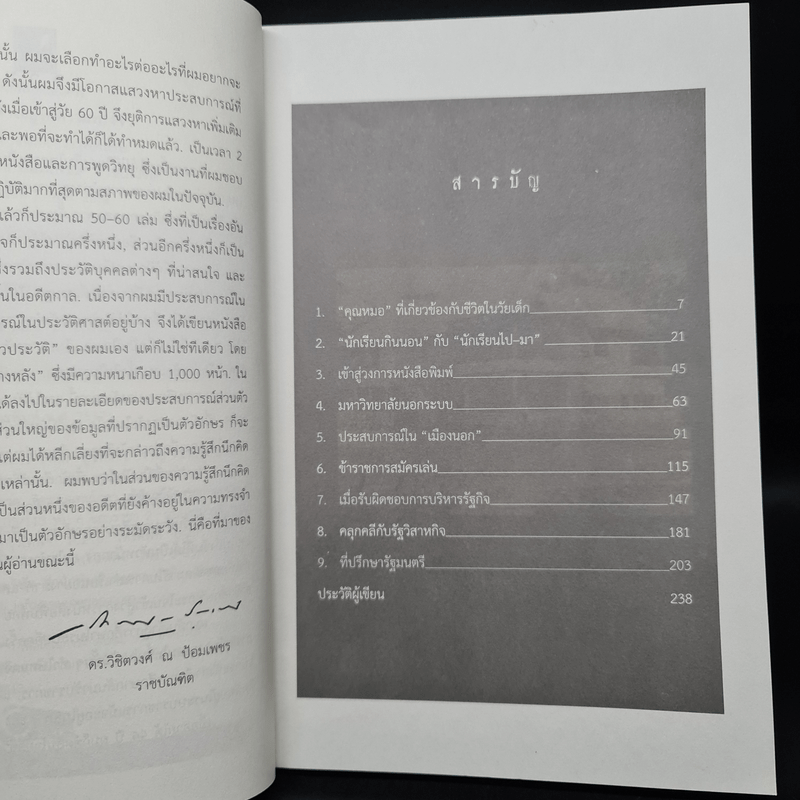 นั้น ผมจะเลือกทำอะไรต่ออะไรที่ผมอยากจะ
ดังนั้นผมจึงมีโอกาสแสวงหาประสบการณ์ที่
เมื่อเข้าสู่วัย 60 ปี จึงยุติการแสวงหาเพิ่มเติม
และพอที่จะทำได้ก็ได้ทำหมดแล้ว. เป็นเวลา 2
หนังสือและการพูดวิทยุ ซึ่งเป็นงานที่ผมชอบ
ฏิบัติมากที่สุดตามสภาพของผมในปัจจุบัน.
แล้วก็ประมาณ 50–60 เล่ม ซึ่งที่เป็นเรื่องอัน
จก็ประมาณครึ่งหนึ่ง, ส่วนอีกครึ่งหนึ่งก็เป็น
ซึ่งรวมถึงประวัติบุคคลต่างๆ ที่น่าสนใจ และ
นในอดีตกาล. เนื่องจากผมมีประสบการณ์ใน
รณ์ในประวัติศาสตร์อยู่บ้าง จึงได้เขียนหนังสือ
วประวัติ” ของผมเอง แต่ก็ไม่ใช่ทีเดียว โดย
างหลัง” ซึ่งมีความหนาเกือบ 1,000 หน้า. ใน
ได้ลงไปในรายละเอียดของประสบการณ์ส่วนตัว
ส่วนใหญ่ของข้อมูลที่ปรากฏเป็นตัวอักษร ก็จะ
แต่ผมได้หลีกเลี่ยงที่จะกล่าวถึงความรู้สึกนึกคิด
เหล่านั้น. ผมพบว่าในส่วนของความรู้สึกนึกคิด
เป็นส่วนหนึ่งของอดีตที่ยังค้างอยู่ในความทรงจำ
มาเป็นตัวอักษรอย่างระมัดระวัง. นี่คือที่มาของ
นผู้อ่านขณะนี้
ดร.วิชิตวงศ์ ณ ป้อมเพชร
ราชบัณฑิต
สารบัญ
1. “คุณหมอ” ที่เกี่ยวข้องกับชีวิตในวัยเด็ก 7
2. “นักเรียนกินนอน” กับ “นักเรียนไป–มา” 21
3. เข้าสู่วงการหนังสือพิมพ์ 45
4. มหาวิทยาลัยนอกระบบ 63
5. ประสบการณ์ใน “เมืองนอก” 91
6. ข้าราชการสมัครเล่น 115
7. เมื่อรับผิดชอบการบริหารรัฐกิจ 147
8. คลุกคลีกับรัฐวิสาหกิจ 181
9. ที่ปรึกษารัฐมนตรี 203
ประวัติผู้เขียน 238